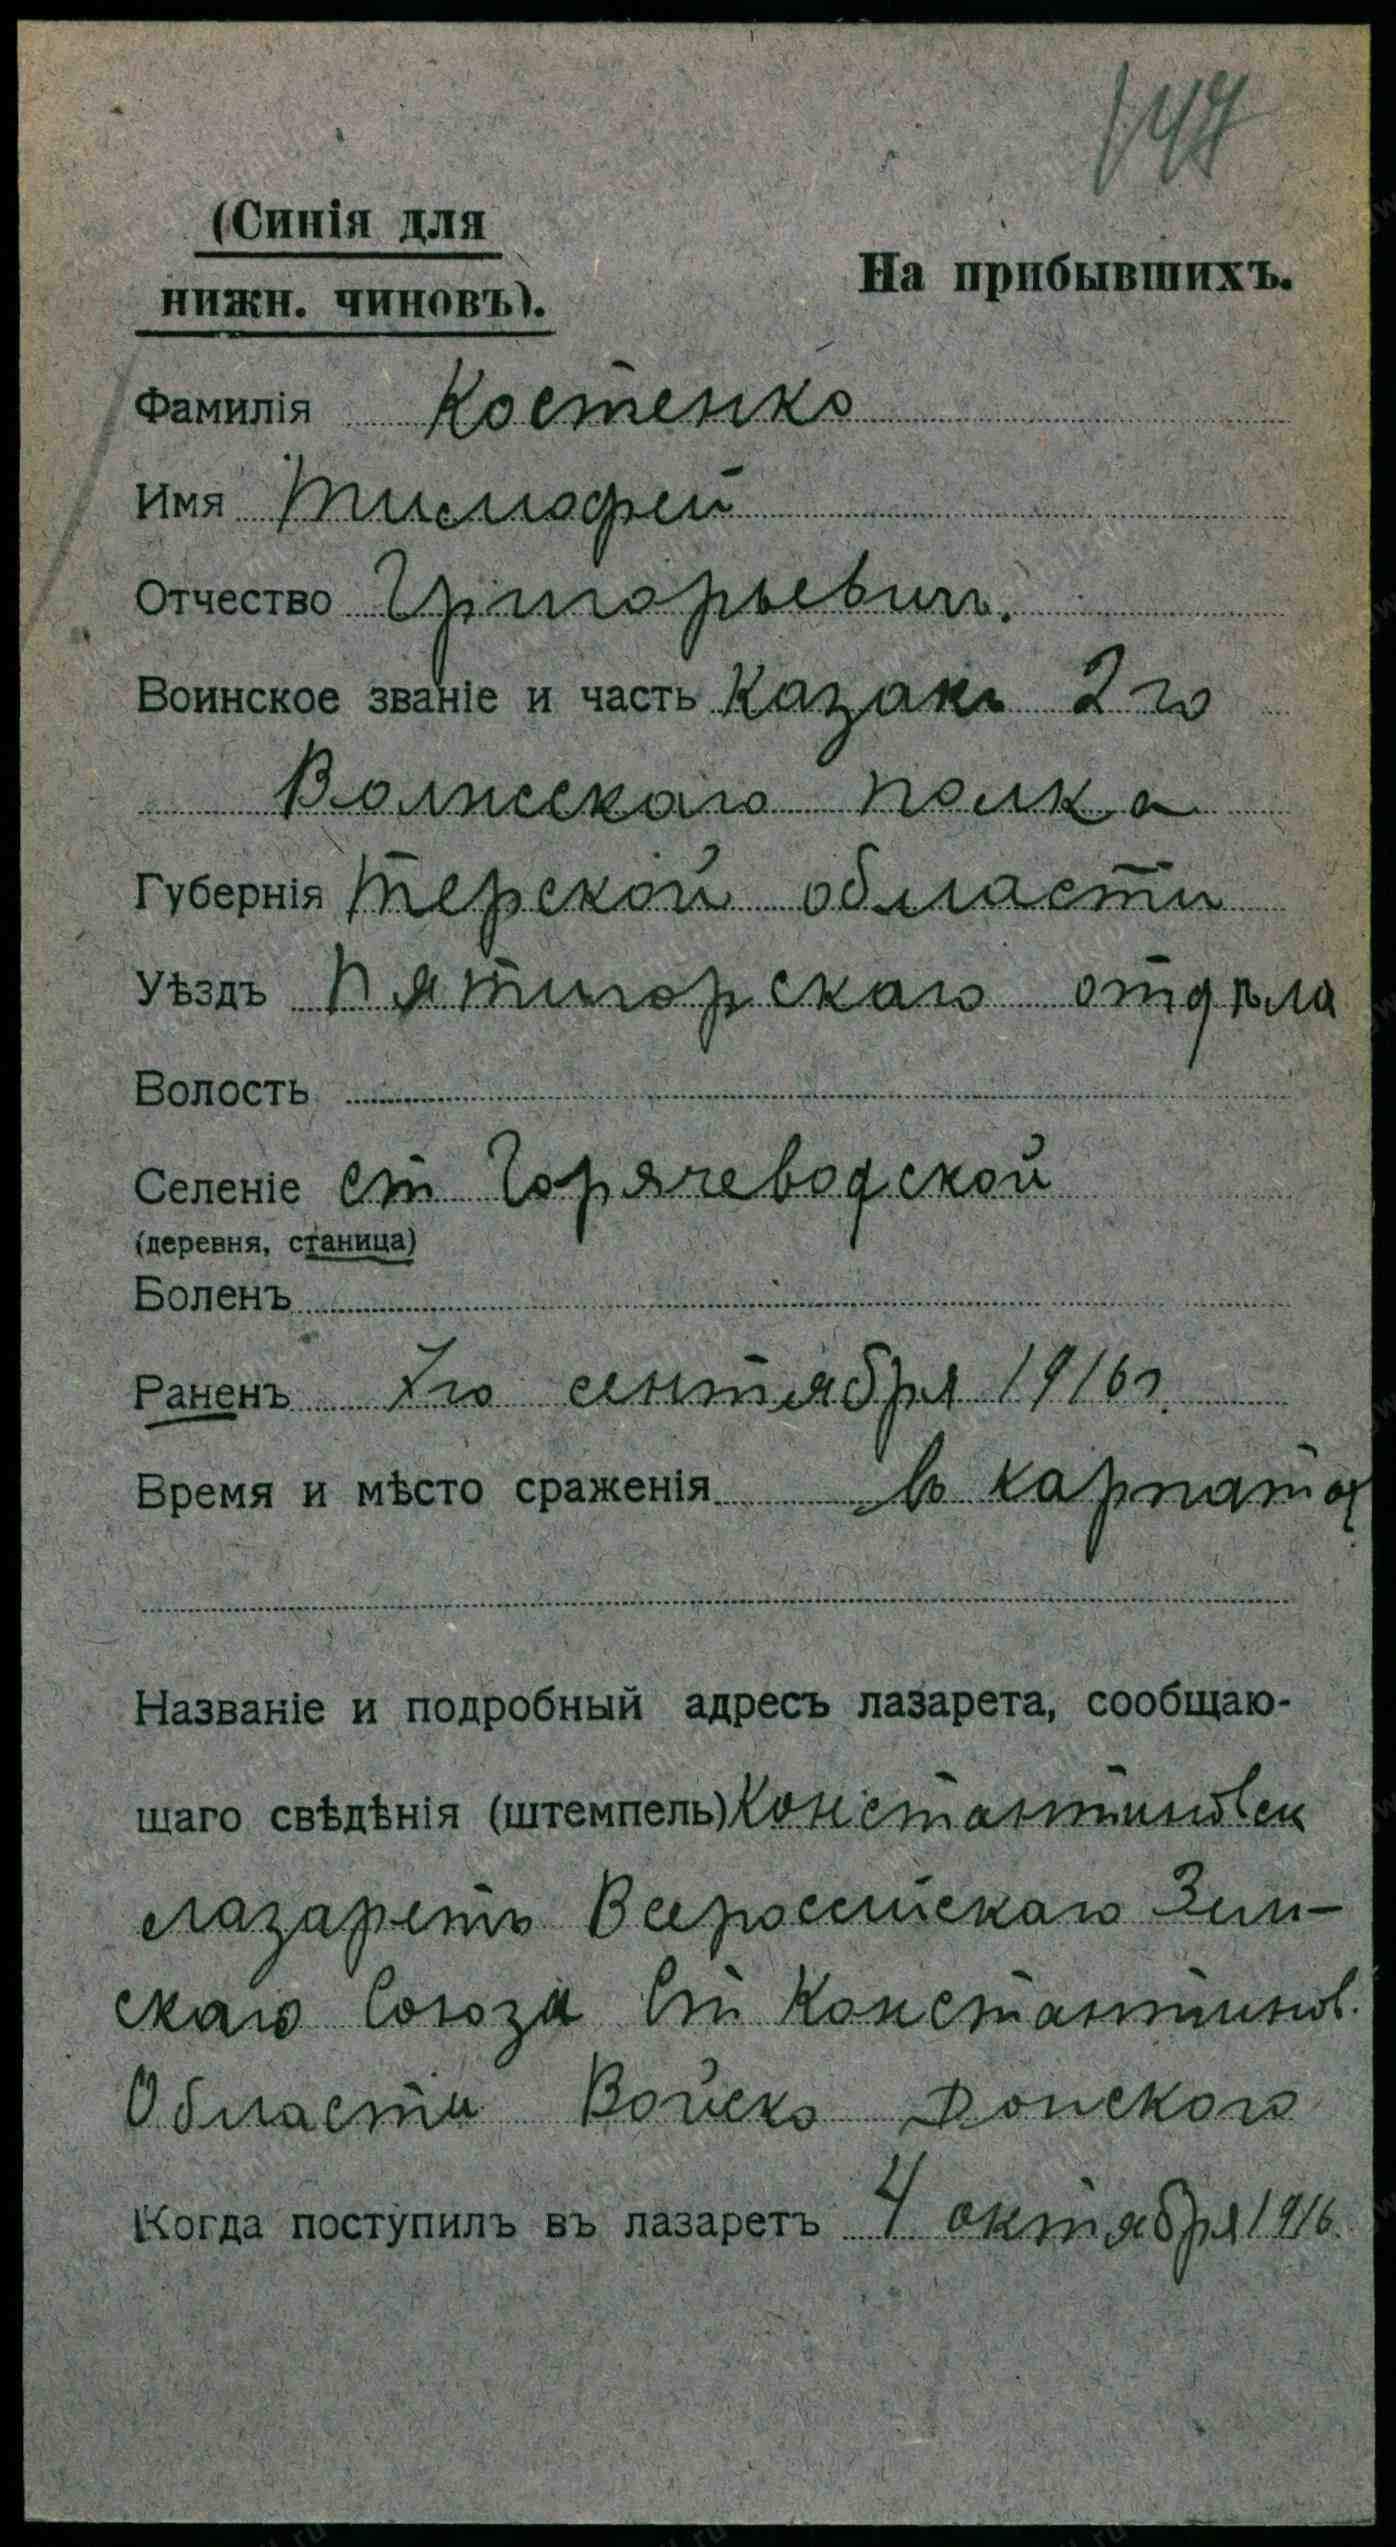 147
(Синія для
нижн. чиновъ).
На прибывшихъ.
Фамилія Костенко
Имя Тимофей
Отчество Григорьевичъ.
Воинское званіе и часть Казакъ 2го
Волжскаго полка
Губернія Терской области
Уѣздъ Пятигорскаго отдѣла
Волость
Селеніе ст Горячеводской
(деревня, станица)
Боленъ
Раненъ 7го сентября 1916 г.
Время и мѣсто сраженія въ карпатах
Названіе и подробный адресъ лазарета, сообщаю-
щаго свѣдѣнія (штемпель) Константиновск
лазаретъ Всероссийскаго Зем-
скаго Союза Ст Константинов.
Области Войско Донского
Когда поступилъ въ лазаретъ 4 октября 1916.